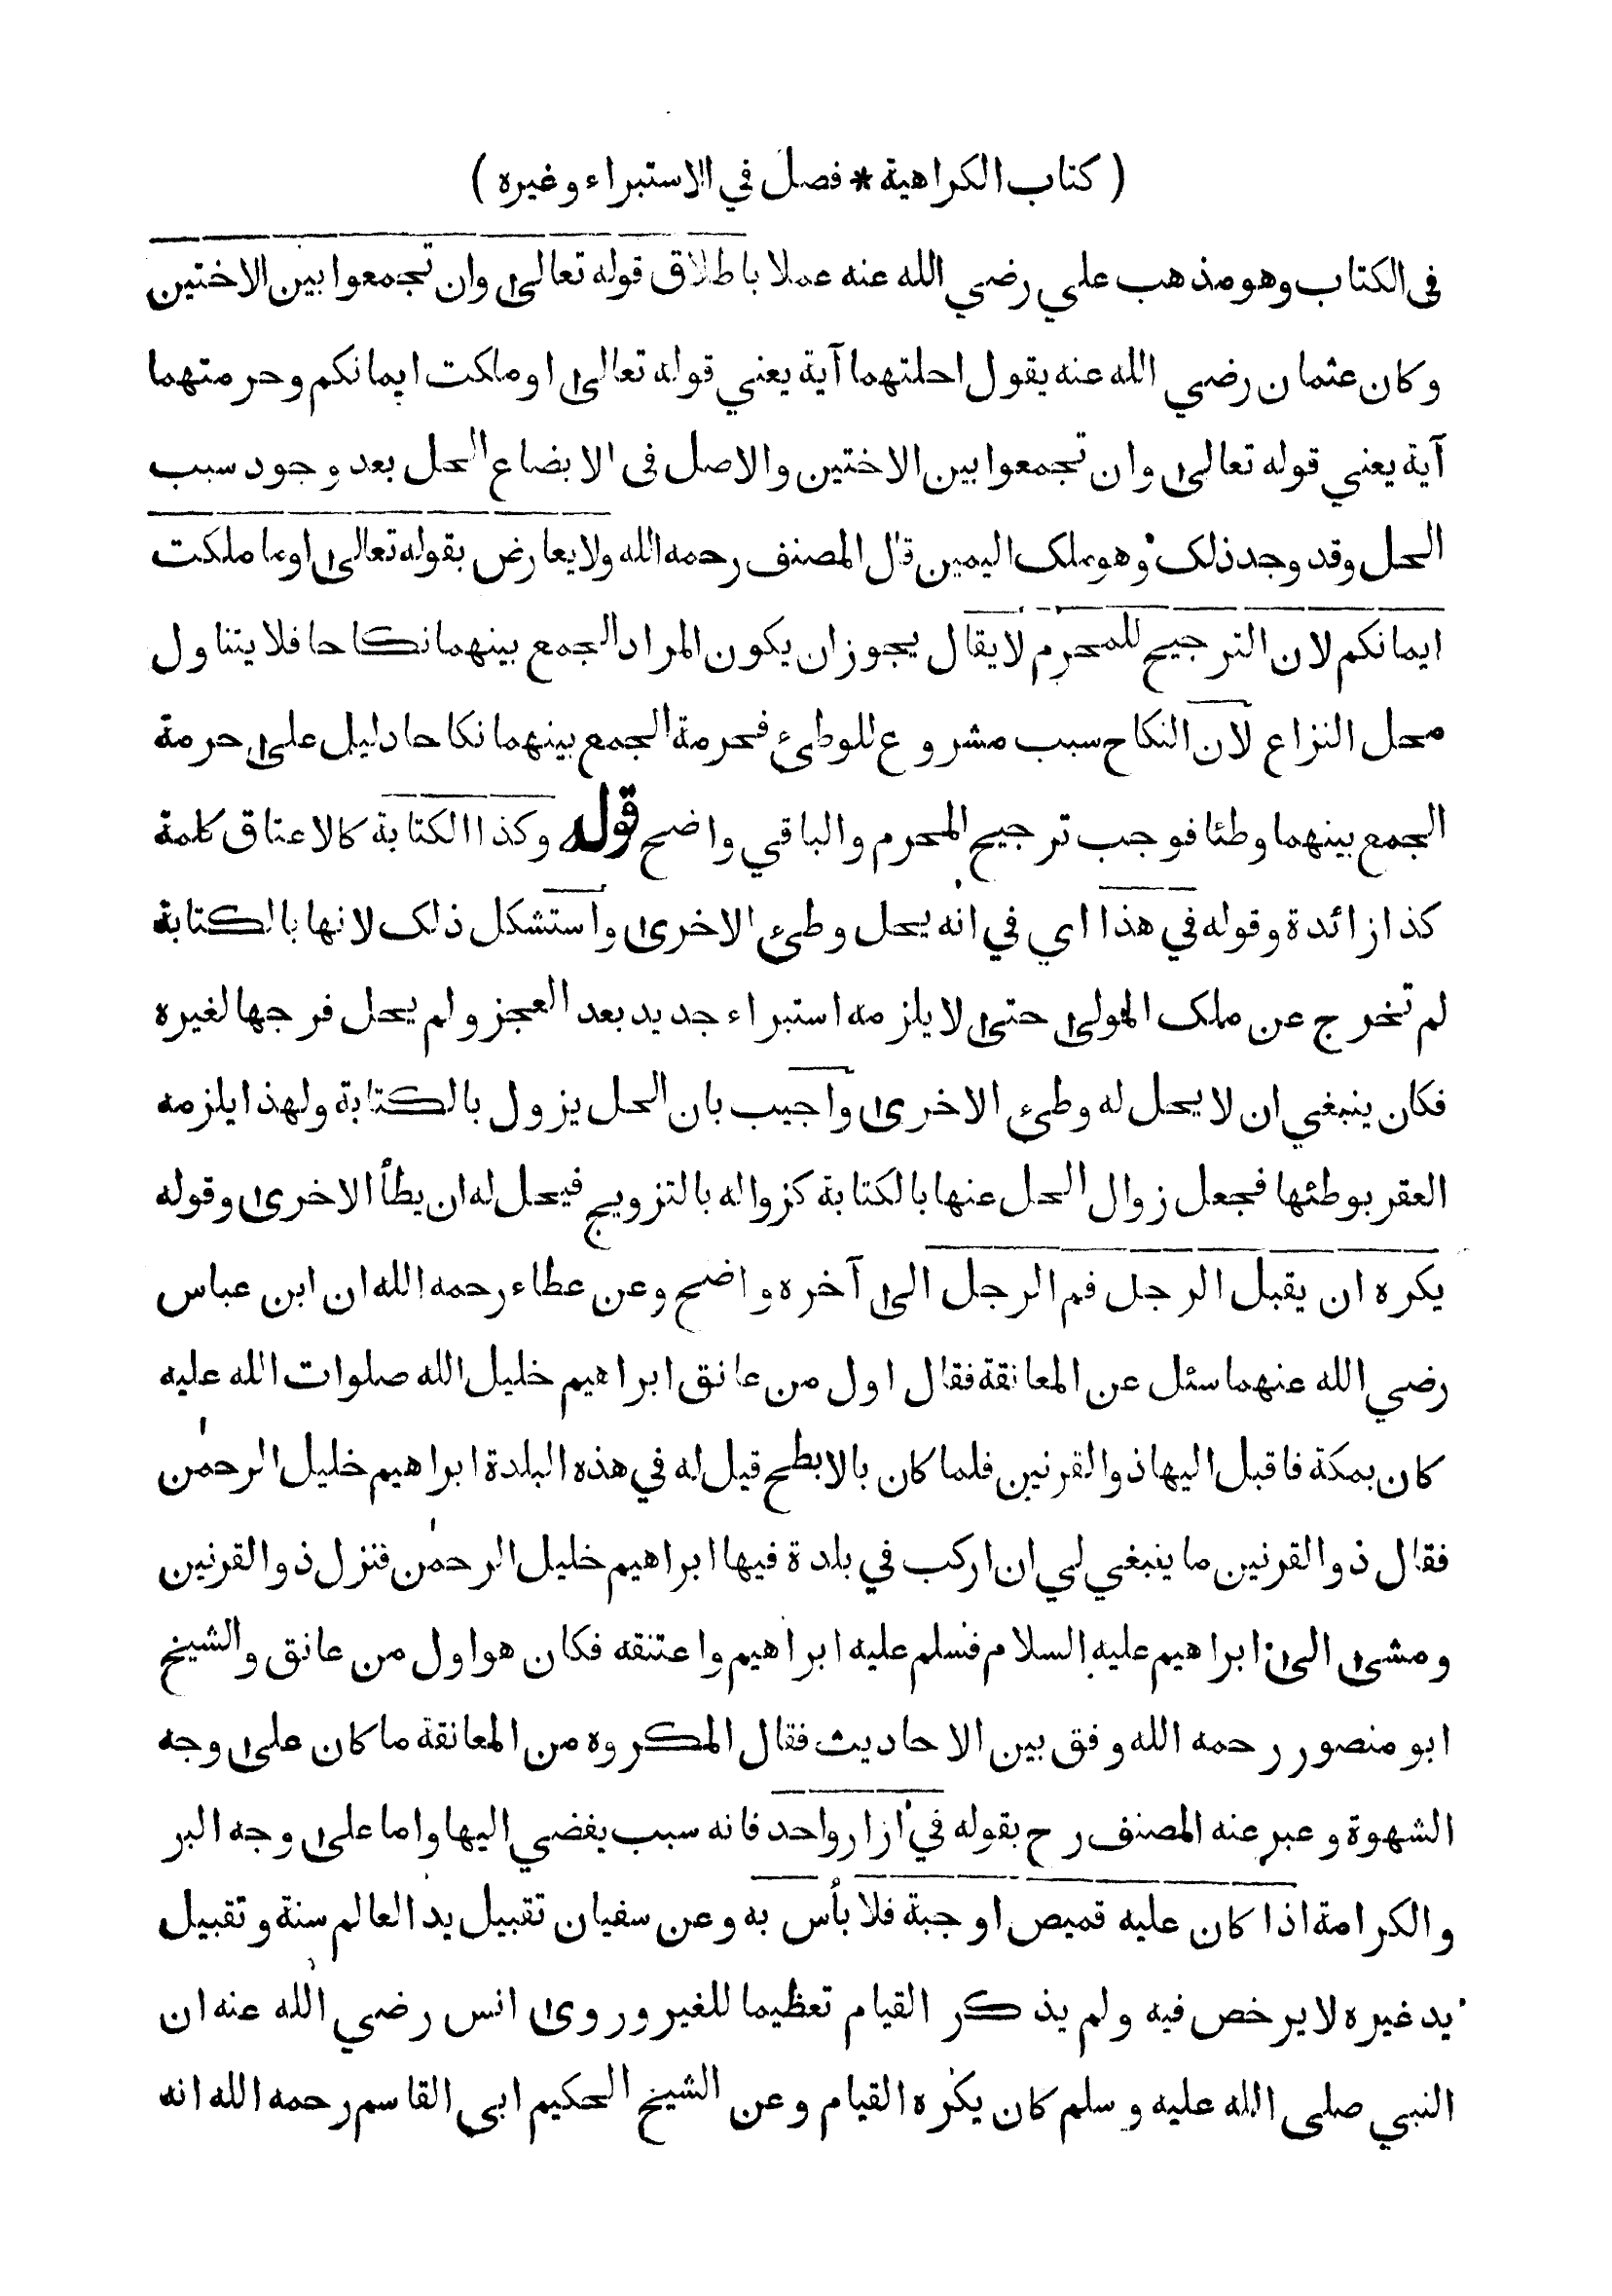 ( كتاب الكراهية * فصل في الاستبراء وغيره )
في الكتاب وهو مذهب علي رضي الله عنه عملا باطلاق قوله تعالى وان تجمعوا بين الاختين
وكان عثمان رضي الله عنه يقول احلتهما آية يعني قوله تعالى او ملكت ايمانكم وحرمتهما
آية يعني قوله تعالى وان تجمعوا بين الاختين والاصل في الابضاع الحل بعد وجود سبب
الحل وقد وجد ذلك وهو ملك اليمين قال المصنف رحمه الله ولا يعارض بقوله تعالى او ما ملكت
ايمانكم لان الترجيح للمحرم لا يقال يجوز ان يكون المراد الجمع بينهما نكاحا فلا يتناول
محل النزاع لان النكاح سبب مشروع للوطئ فحرمة الجمع بينهما نكاحا دليل على حرمة
الجمع بينهما وطئا فوجب ترجيح المحرم والباقي واضح قوله وكذا الكتابة كالاعتاق كلمة
كذا زائدة وقوله في هذا اي في انه يحل وطئ الاخرى واستشكل ذلك لانها بالكتابة
لم تخرج عن ملك المولى حتى لا يلزمه استبراء جديد بعد العجز ولم يحل فرجها لغيره
فكان ينبغي ان لا يحل له وطئ الاخرى واجيب بان الحل يزول بالكتابة ولهذا يلزمه
العقر بوطئها فجعل زوال الحل عنها بالكتابة كزواله بالتزويج فيحل له ان يطأ الاخرى وقوله
يكره ان يقبل الرجل فم الرجل الى آخره واضح وعن عطاء رحمه الله ان ابن عباس
رضي الله عنهما سئل عن المعانقة فقال اول من عانق ابراهيم خليل الله صلوات الله عليه
كان بمكة فاقبل اليها ذو القرنين فلما كان بالابطح قيل له في هذه البلدة ابراهيم خليل الرحمٰن
فقال ذو القرنين ما ينبغي لي ان اركب في بلدة فيها ابراهيم خليل الرحمٰن فنزل ذو القرنين
ومشى الى ابراهيم عليه السلام فسلم عليه ابراهيم واعتنقه فكان هو اول من عانق والشيخ
ابو منصور رحمه الله وفق بين الاحاديث فقال المكروه من المعانقة ما كان على وجه
الشهوة وعبر عنه المصنف رح بقوله في ازار واحد فانه سبب يفضي اليها واما على وجه البر
والكرامة اذا كان عليه قميص او جبة فلا بأس به وعن سفيان تقبيل يد العالم سنة وتقبيل
يد غيره لا يرخص فيه ولم يذكر القيام تعظيما للغير وروى انس رضي الله عنه ان
النبي صلى الله عليه وسلم كان يكره القيام وعن الشيخ الحكيم ابي القاسم رحمه الله انه